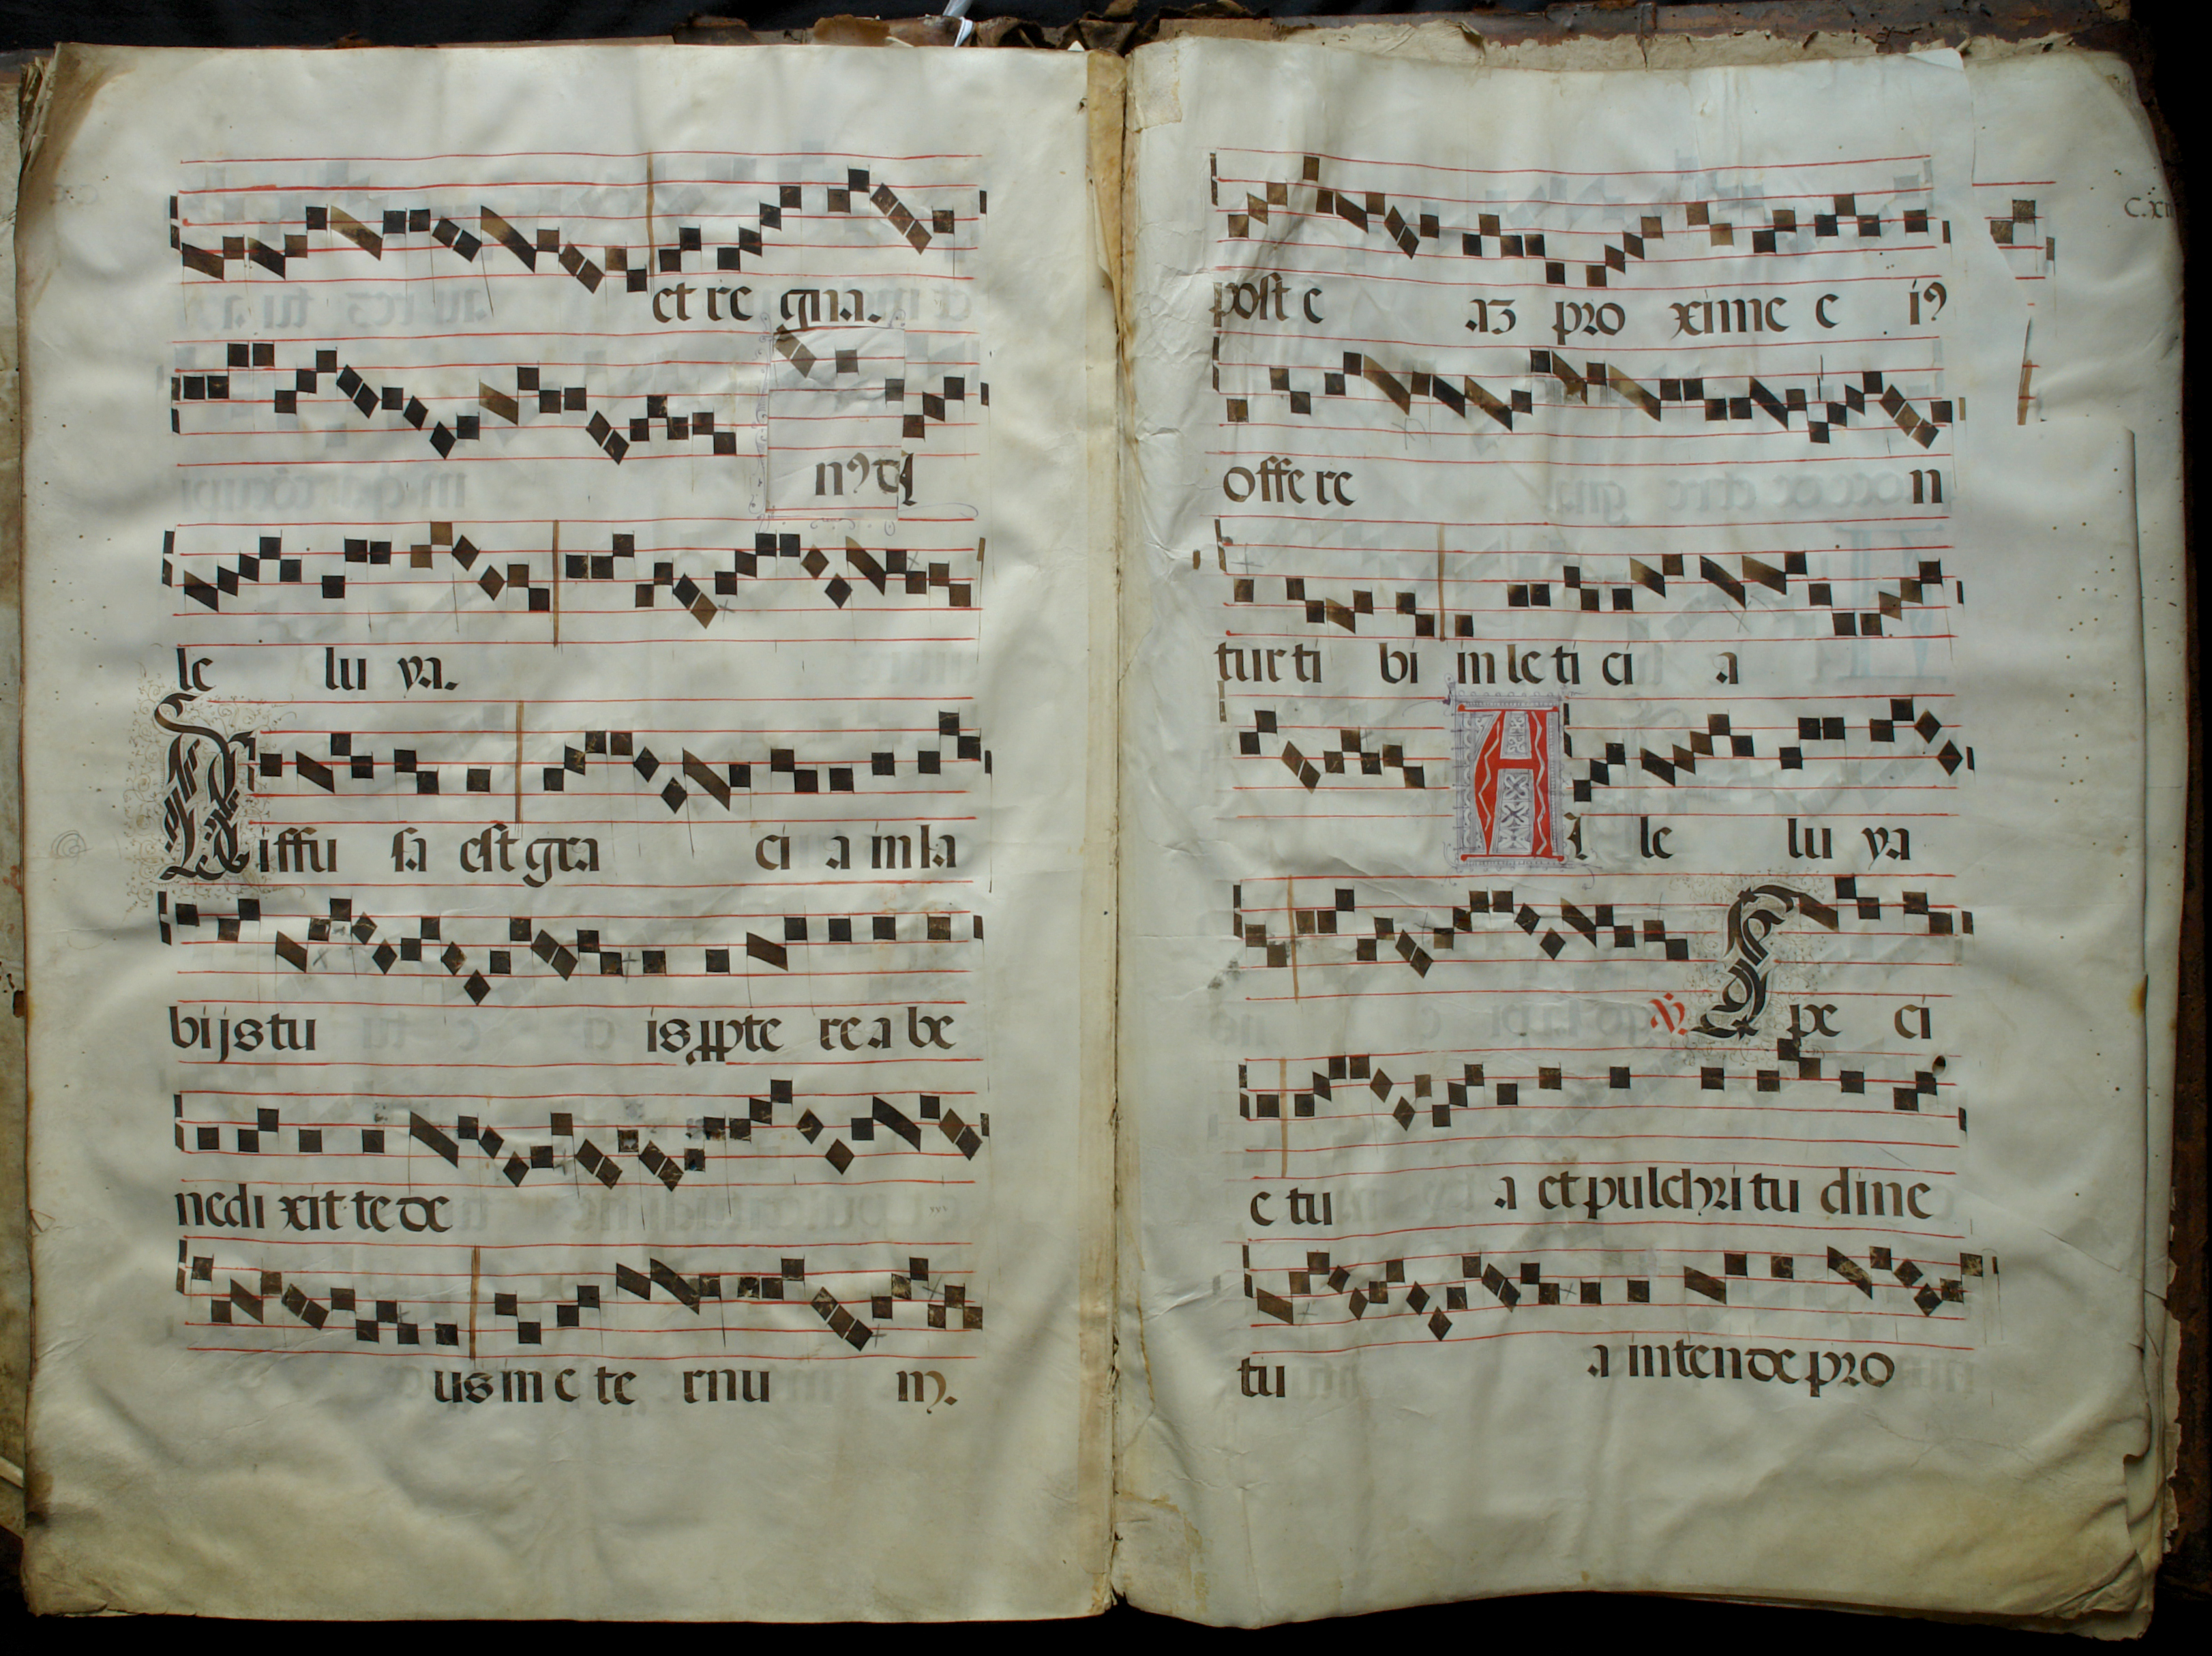 et re gna.
nꝰ ꝺ A
le lu ya.
Diffu sa est gra ci a in la
bijs tu is ꝓpte re a be
nedi xit te de
us in e te rnu m.
C.xii
post e aꝫ pro xime e iꝰ
offe re n
tur ti bi in le ti ci a
A l le lu ya
℟ Spe ci
e tu a et pulchri tu dine
tu a inten de pro